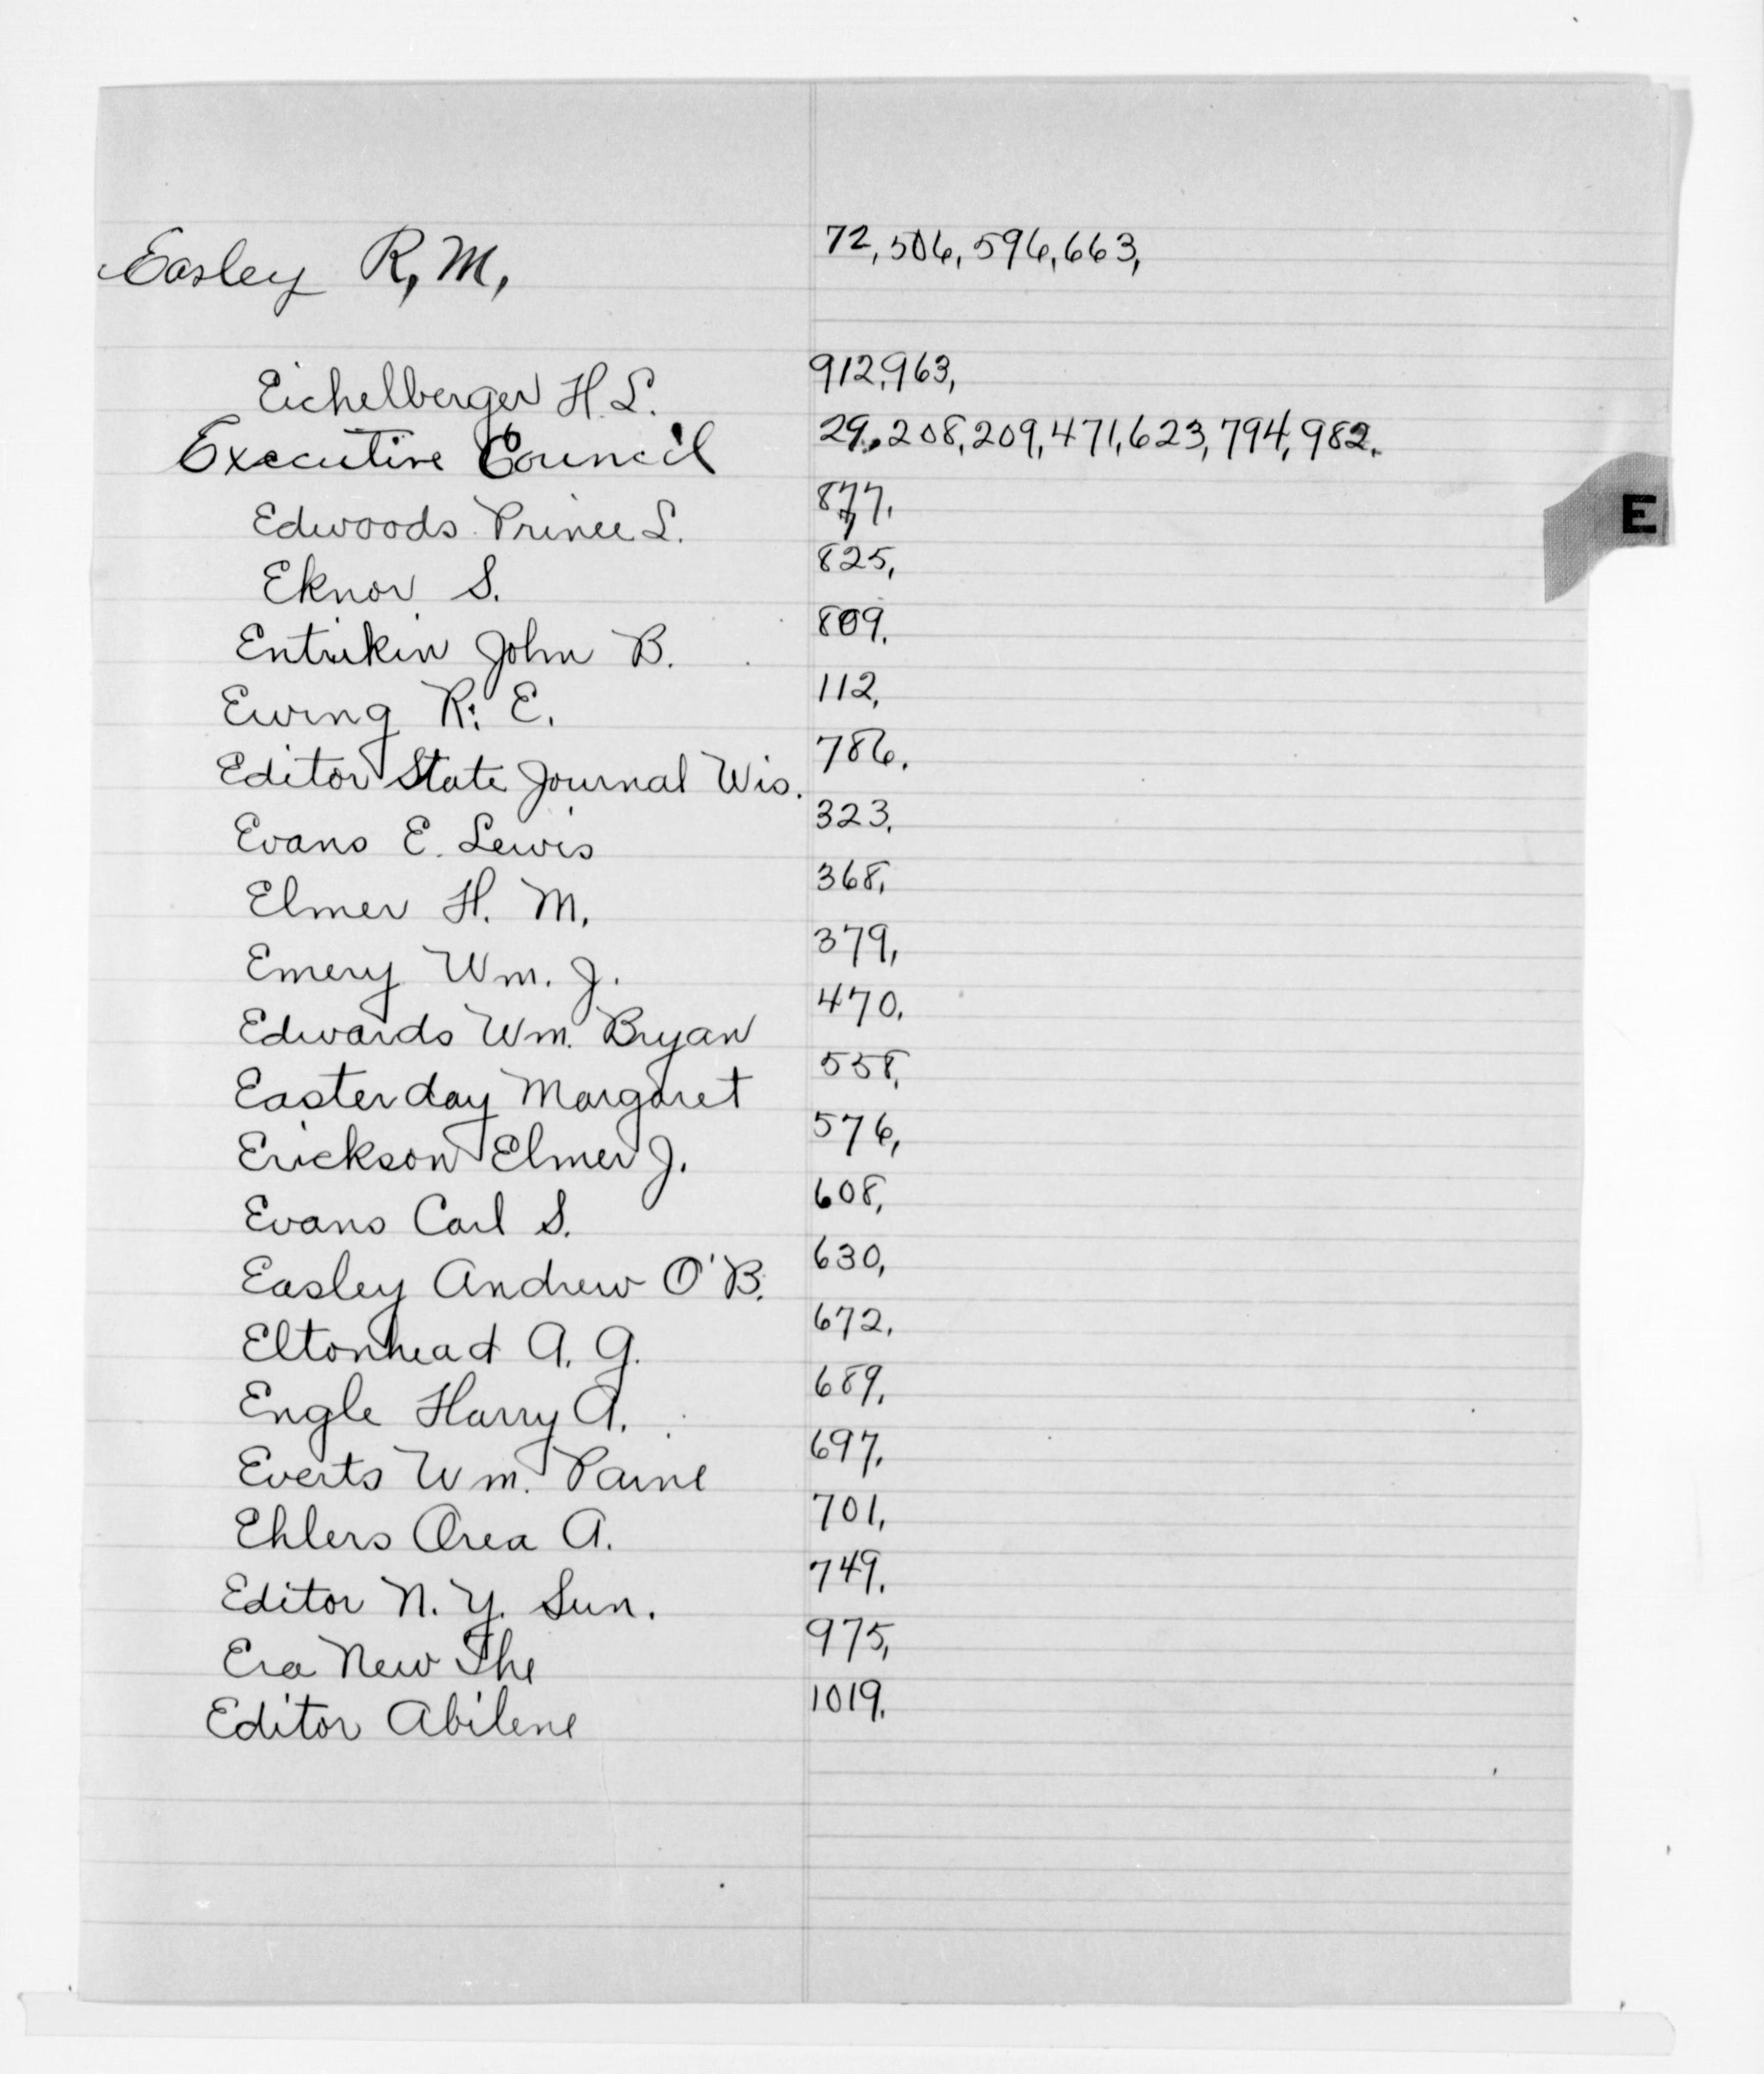 Easley R, M, 72, 506, 596, 663,
Eichelberger H. L. 912, 963,
Executive Council 29, 208, 209, 471, 623, 794, 982.
Edwoods Prince L. 877,
Eknor S. 825,
Entrikin John B. 809.
Ewing R. E. 112,
Editor State Journal Wis. 786.
Evans E. Lewis 323,
Elmer H. M. 368,
Emery Wm. J. 379,
Edwards Wm. Bryan 470.
Easterday Margaret 558,
Erickson Elmer J. 576,
Evans Carl S. 608,
Easley Andrew O'B. 630,
Eltonhead A. G. 672,
Engle Harry A. 689,
Everts Wm. Paine 697,
Ehlers Orea A. 701,
Editor N. Y. Sun. 749.
Era New The 975,
Editor Abilene 1019.
E